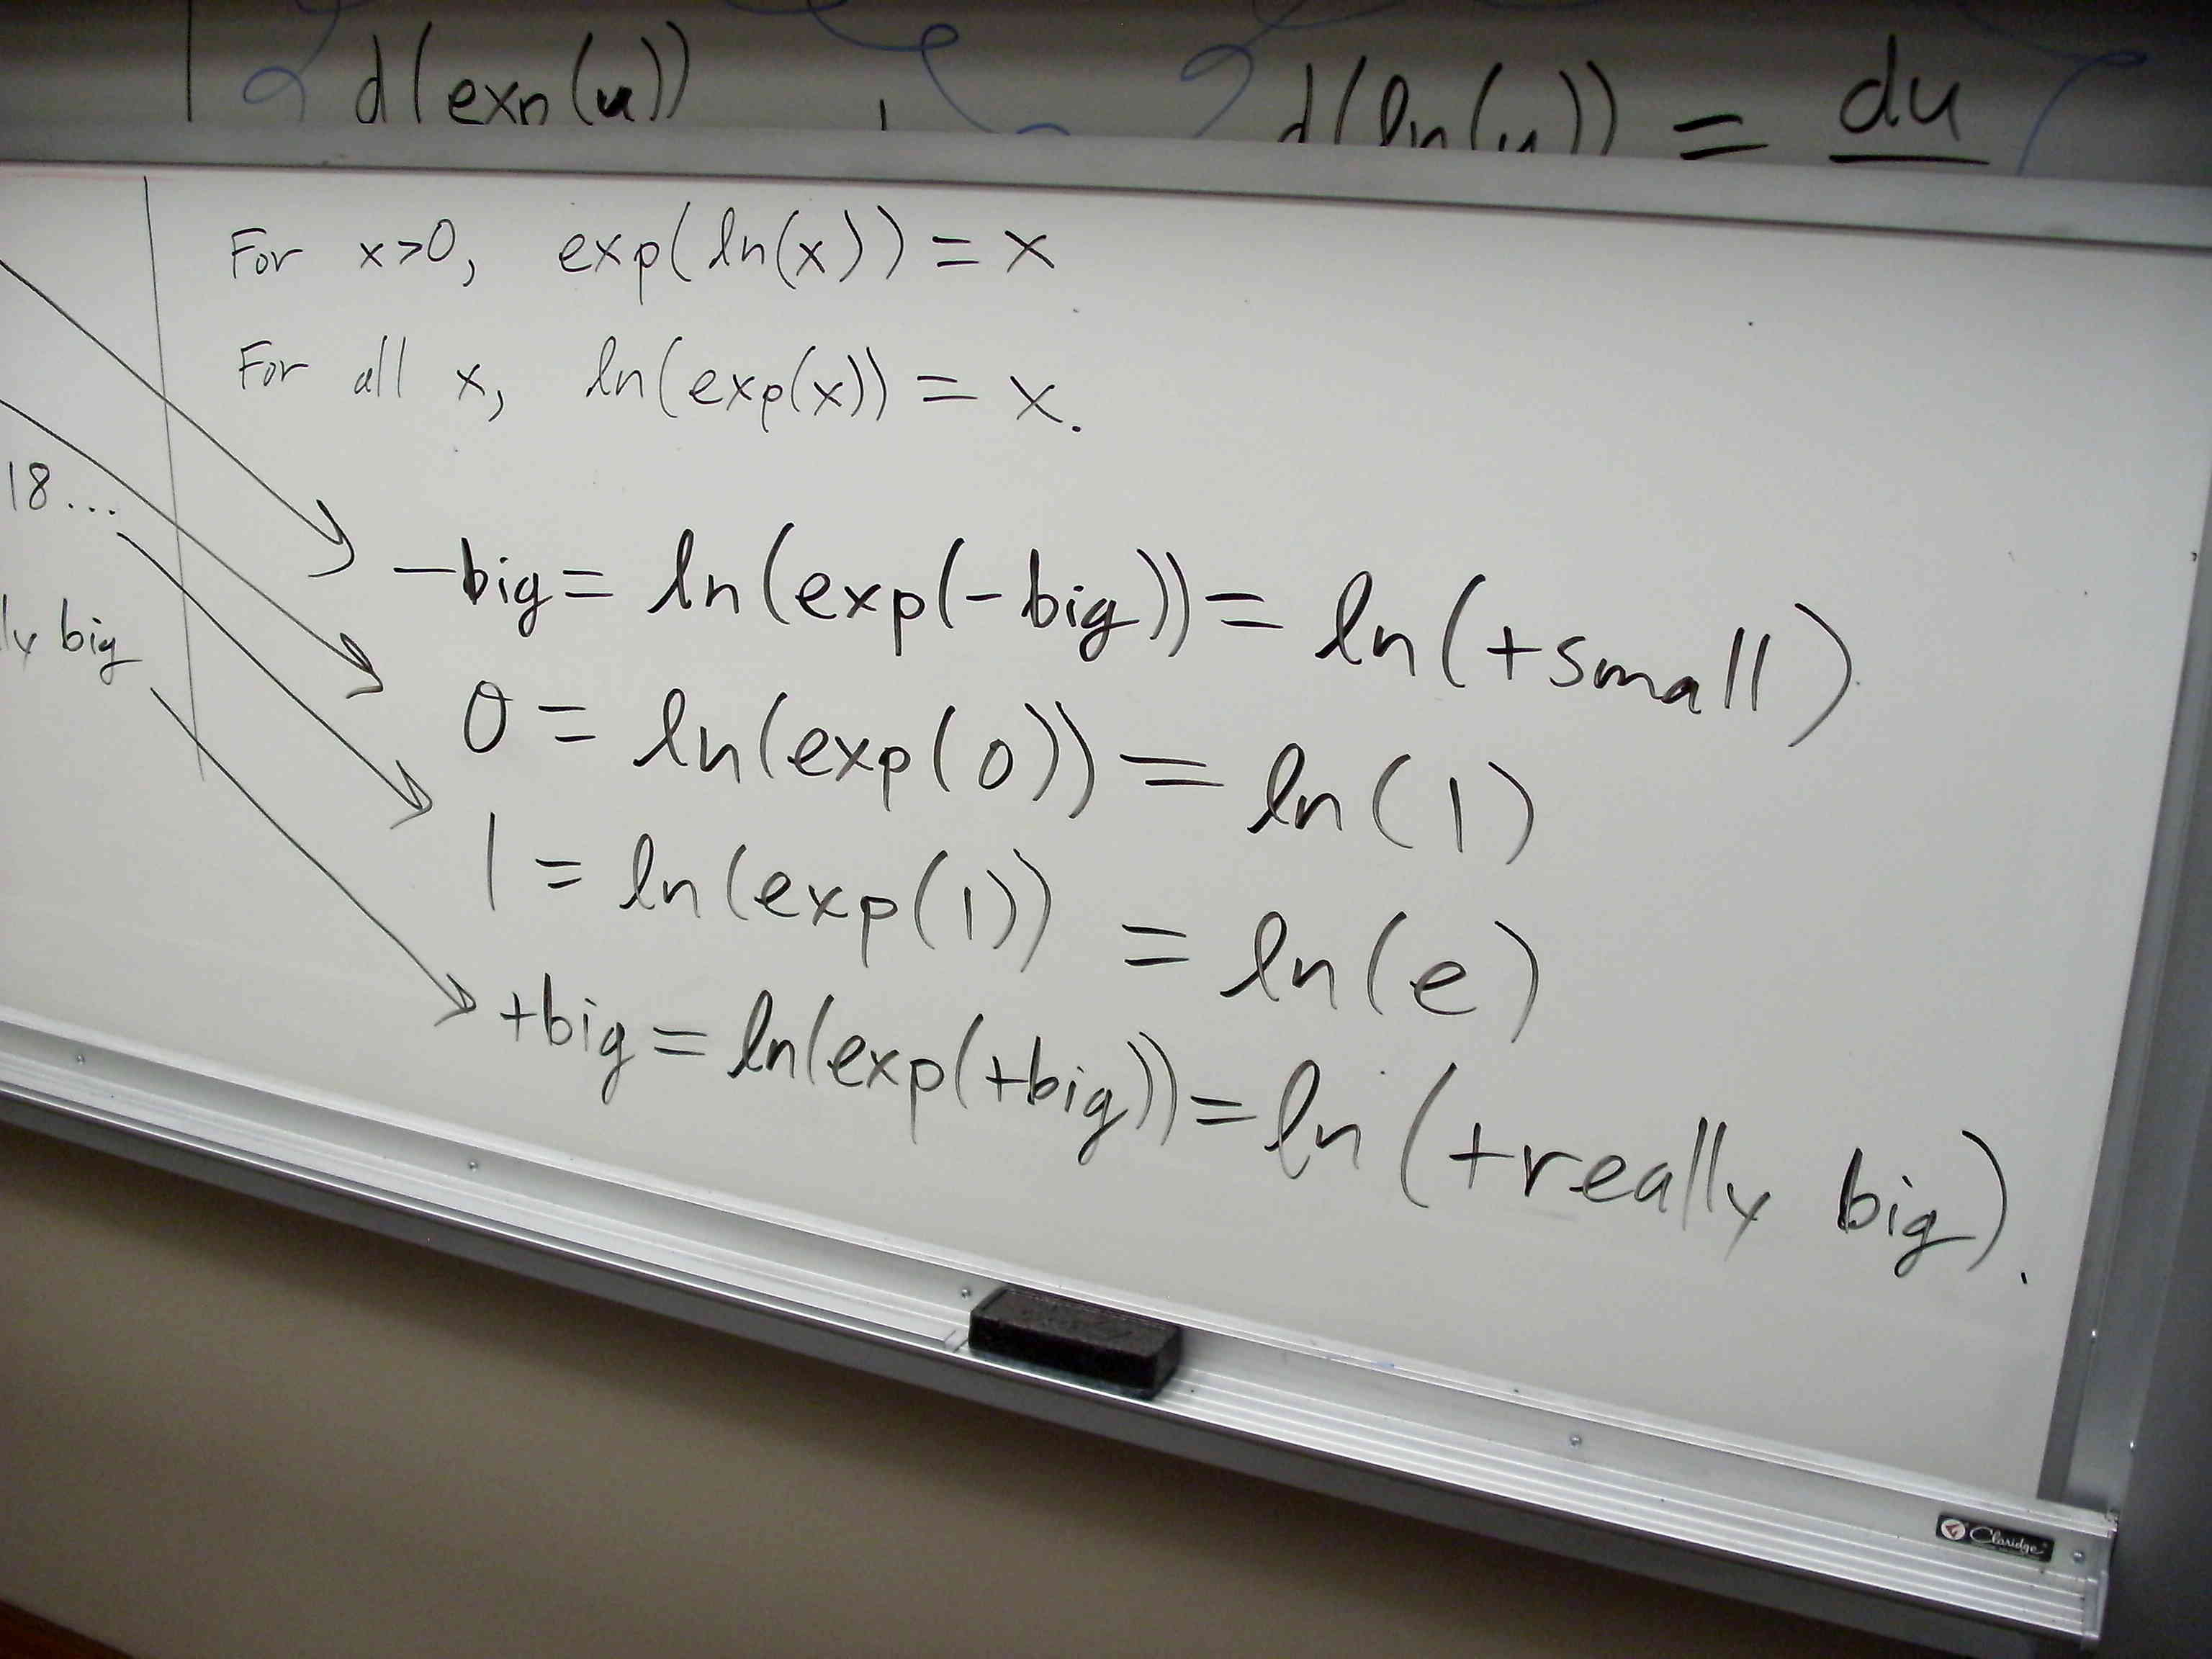 d(exp(u))
d(ln(u)) = du
For x>0, exp(ln(x)) = x
For all x, ln(exp(x)) = x.
18...
ly big
-big = ln(exp(-big)) = ln(+small)
0 = ln(exp(0)) = ln(1)
1 = ln(exp(1)) = ln(e)
+big = ln(exp(+big)) = ln(+really big).
Claridge